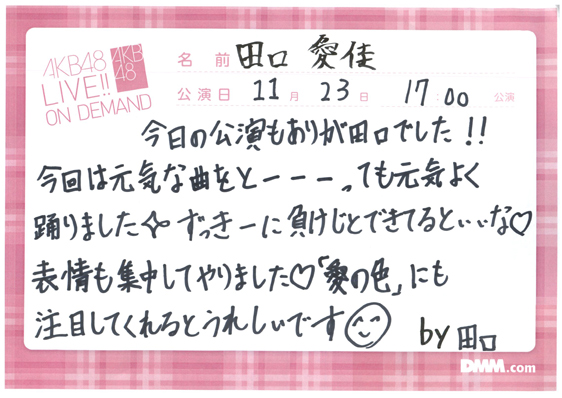 AKB48
LIVE!!
ON DEMAND
AKB
48
名前 田口 愛佳
公演日 11月 23日 17:00 公演
今日の公演もおりが田口でした!!
今回は元気な曲をとーーーっても元気よく
踊りました✧ ずっきーに負けじとできてるといいな♡
表情も集中してやりました♡「愛の色」にも
注目してくれるとうれしいです☺
by 田口
DMM.com